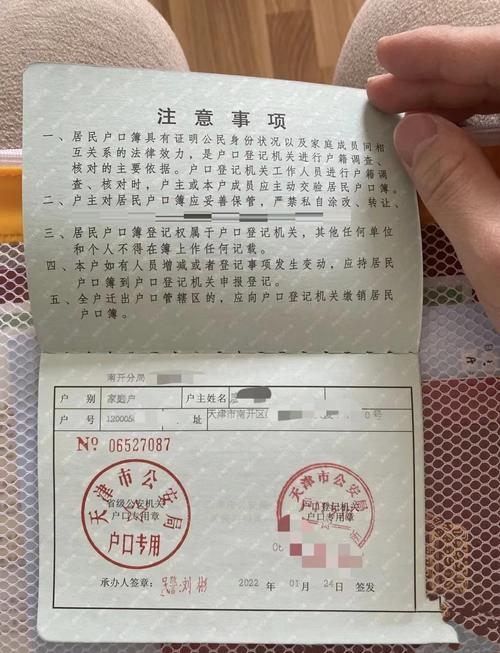 注意事项
一、居民户口簿具有证明公民身份状况以及家庭成员间相
互关系的法律效力，是户口登记机关进行户籍调查、
核对的主要依据。户口登记机关工作人员进行户籍调
查、核对时，户主或本户成员应主动交验居民户口簿。
二、户主对居民户口簿应妥善保管，严禁私自涂改、转让、
三、居民户口簿登记权属于户口登记机关，其他任何单位
和个人不得在簿上作任何记载。
四、本户如有人员增减或者登记事项发生变动，应持居民
户口簿到户口登记机关申报登记。
五、全户迁出户口管辖区的，应向户口登记机关缴销居民
户口簿。
南开分局
户 别 家庭户 户主姓名
户 号 120005 址 天津市南开区 0号
No 06527087
天津市公安局
省级公安机关
户口专用章
户口专用
天津市公安局
户口登记机关
户口专用章
承办人签章：
2022 年 01 月 24 日 签发